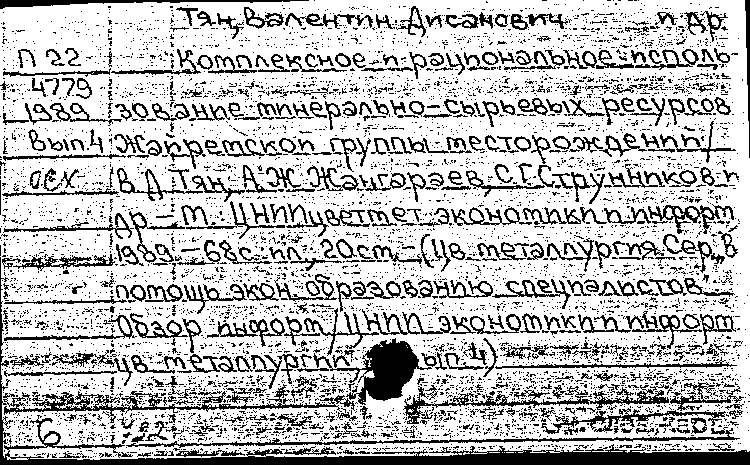 Тян, Валентин Дисанович и др.
П 22 Комплексное и рациональное исполь-
4779
1989 зование минерально-сырьевых ресурсов
Вып.4 Жайремской группы месторождений /
осх В. Д. Тян, А. Ж. Жангараев, С. Г. Струнников и
др – М.: ЦНИИцветмет экономики и информ
1989 – 68с. ил., 20см – (Цв. металлургия. Сер. „В
помощь экон. образованию специалистов"
Обзор. информ / ЦНИИ экономики и информ
цв. металлургии, вып. 4)
6